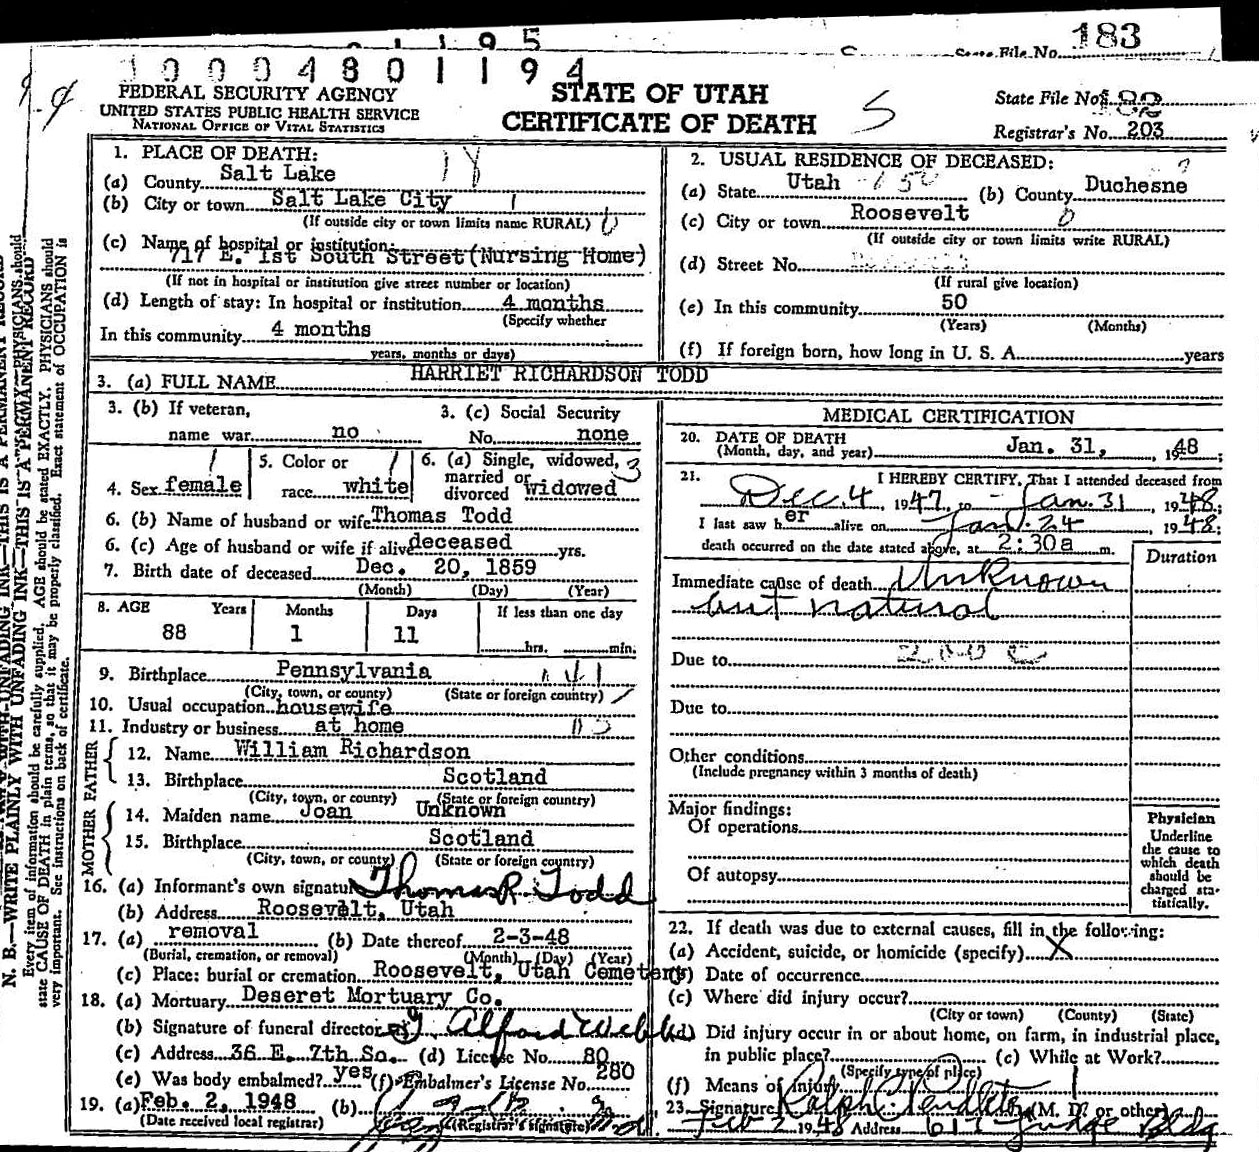 1 1 9 5
State File No. 183
1 0 0 0 4 8 0 1 1 9 4
FEDERAL SECURITY AGENCY
UNITED STATES PUBLIC HEALTH SERVICE
NATIONAL OFFICE OF VITAL STATISTICS
STATE OF UTAH
CERTIFICATE OF DEATH
State File No. 182
Registrar's No. 203
N. B.—WRITE PLAINLY WITH UNFADING INK—THIS IS A PERMANENT RECORD
Every item of information should be carefully supplied. AGE should be stated EXACTLY. PHYSICIANS should
state CAUSE OF DEATH in plain terms, so that it may be properly classified. Exact statement of OCCUPATION is
very important. See instructions on back of certificate.
1. PLACE OF DEATH:
(a) County Salt Lake
(b) City or town Salt Lake City
(If outside city or town limits name RURAL)
(c) Name of hospital or institution:
717 E. 1st South Street (Nursing Home)
(If not in hospital or institution give street number or location)
(d) Length of stay: In hospital or institution 4 months
(Specify whether
In this community 4 months
years, months or days)
2. USUAL RESIDENCE OF DECEASED:
(a) State Utah (b) County Duchesne
(c) City or town Roosevelt
(If outside city or town limits write RURAL)
(d) Street No.
(If rural give location)
(e) In this community 50
(Years) (Months)
(f) If foreign born, how long in U. S. A. years
3. (a) FULL NAME HARRIET RICHARDSON TODD
3. (b) If veteran,
name war no
3. (c) Social Security
No. none
4. Sex female
5. Color or
race white
6. (a) Single, widowed,
married or
divorced widowed
6. (b) Name of husband or wife Thomas Todd
6. (c) Age of husband or wife if alive deceased yrs.
7. Birth date of deceased Dec. 20, 1859
(Month) (Day) (Year)
8. AGE Years Months Days If less than one day
88 1 11
hrs. min.
9. Birthplace Pennsylvania
(City, town, or county) (State or foreign country)
10. Usual occupation housewife
11. Industry or business at home
FATHER
12. Name William Richardson
13. Birthplace Scotland
(City, town, or county) (State or foreign country)
MOTHER
14. Maiden name Joan Unknown
15. Birthplace Scotland
(City, town, or county) (State or foreign country)
16. (a) Informant's own signature Thomas R Todd
(b) Address Roosevelt, Utah
17. (a) removal (b) Date thereof 2-3-48
(Burial, cremation, or removal) (Month) (Day) (Year)
(c) Place: burial or cremation Roosevelt, Utah Cemetery
18. (a) Mortuary Deseret Mortuary Co.
(b) Signature of funeral director Alford Webb
(c) Address 36 E. 7th So. (d) License No. 80
(e) Was body embalmed? yes (f) Embalmer's License No. 280
19. (a) Feb. 2, 1948 (b)
(Date received local registrar) (Registrar's signature)
MEDICAL CERTIFICATION
20. DATE OF DEATH
(Month, day, and year) Jan. 31, 1948;
21. I HEREBY CERTIFY, That I attended deceased from
Dec. 4, 1947, to Jan. 31, 1948;
I last saw her alive on Jan. 24 1948;
death occurred on the date stated above, at 2:30a m.
Duration
Immediate cause of death Unknown
but natural
Due to
Due to
Other conditions
(Include pregnancy within 3 months of death)
Major findings:
Of operations
Of autopsy
Physician
Underline
the cause to
which death
should be
charged sta-
tistically.
22. If death was due to external causes, fill in the following:
(a) Accident, suicide, or homicide (specify) X
(b) Date of occurrence
(c) Where did injury occur?
(City or town) (County) (State)
(d) Did injury occur in or about home, on farm, in industrial place,
in public place? (e) While at Work?
(Specify type of place)
(f) Means of injury
23. Signature Ralph Pendleton (M. D. or other)
Feb 2 1948 Address 617 Judge Bldg